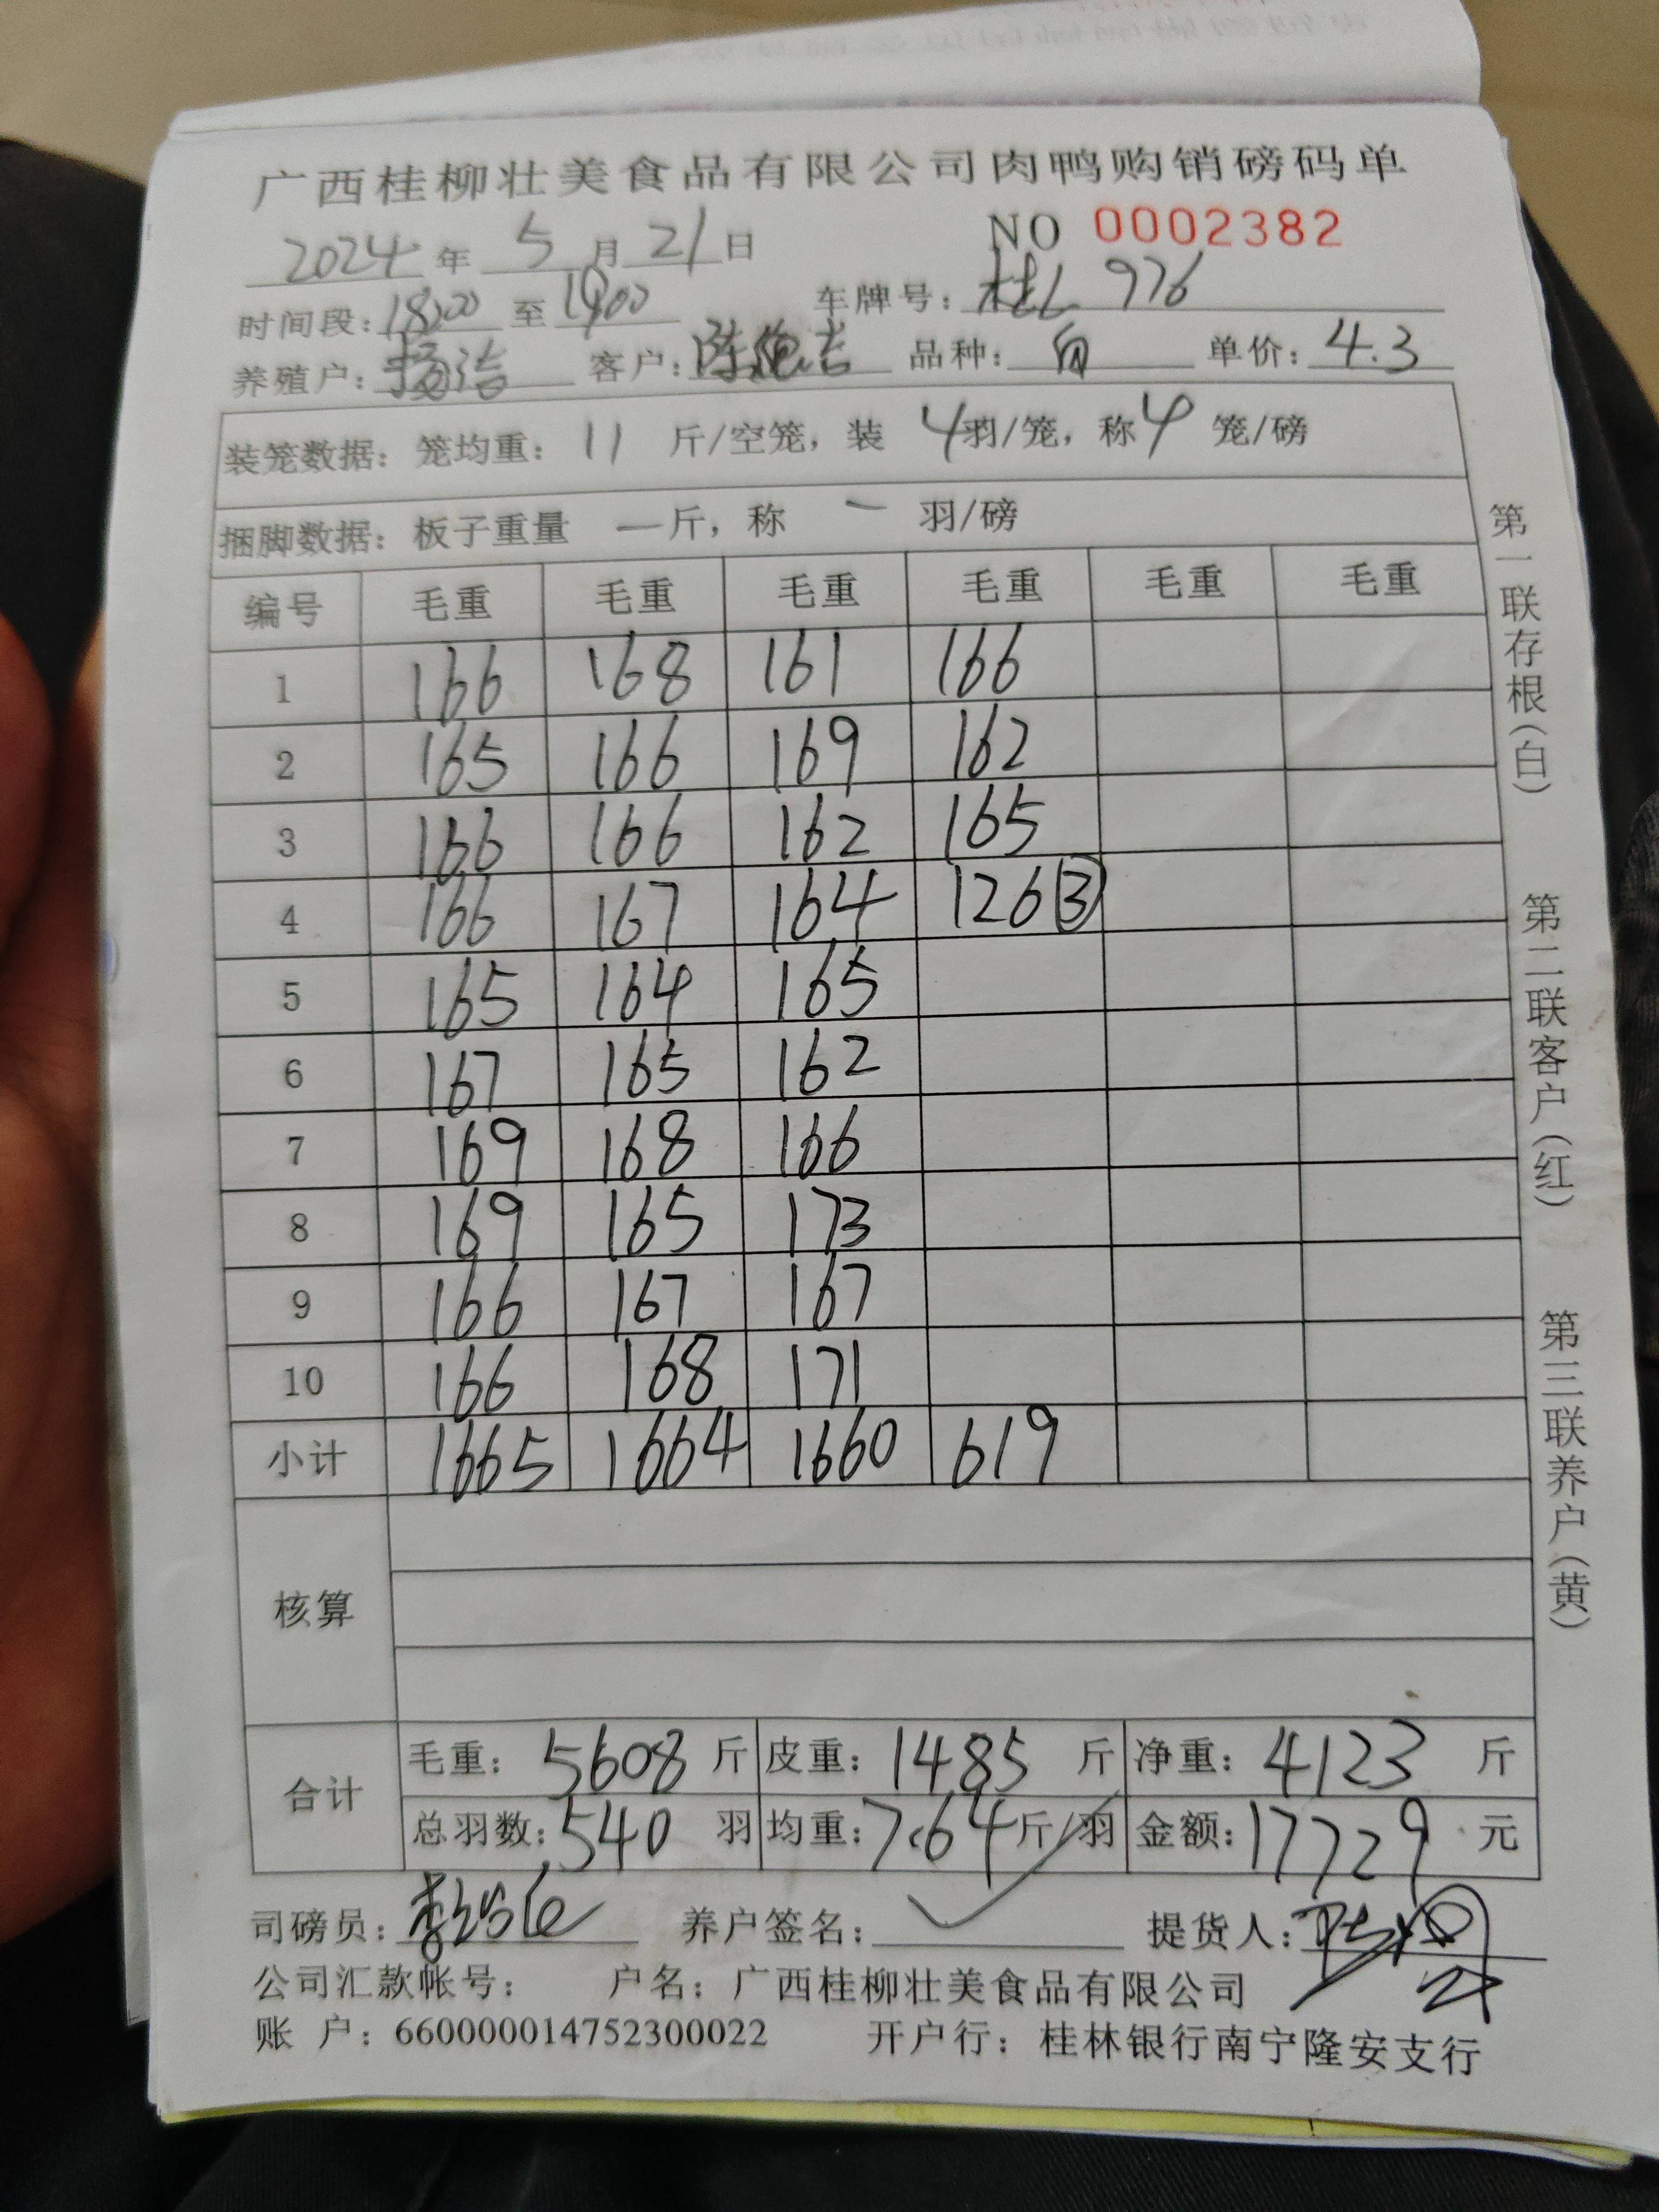 广西桂柳壮美食品有限公司肉鸭购销磅码单
2024 年 5 月 21 日 NO 0002382
时间段: 18:00 至 19:00 车牌号: 桂L 976
养殖户: 客户: 陈 品种: 白 单价: 4.3
装笼数据: 笼均重: 11 斤/空笼, 装 4 羽/笼, 称 4 笼/磅
捆脚数据: 板子重量 一 斤, 称 一 羽/磅
编号 毛重 毛重 毛重 毛重 毛重 毛重
1 166 168 161 166
2 165 166 169 162
3 166 166 162 165
4 166 167 164 126 ③
5 165 164 165
6 167 165 162
7 169 168 166
8 169 165 173
9 166 167 167
10 166 168 171
小计 1665 1664 1660 619
核算
合计 毛重: 5608 斤 皮重: 1485 斤 净重: 4123 斤
总羽数: 540 羽 均重: 7.64 斤/羽 金额: 17729 元
司磅员: 养户签名: 提货人:
公司汇款帐号: 户名: 广西桂柳壮美食品有限公司
账 户: 660000014752300022 开户行: 桂林银行南宁隆安支行
第一联存根(白) 第二联客户(红) 第三联养户(黄)